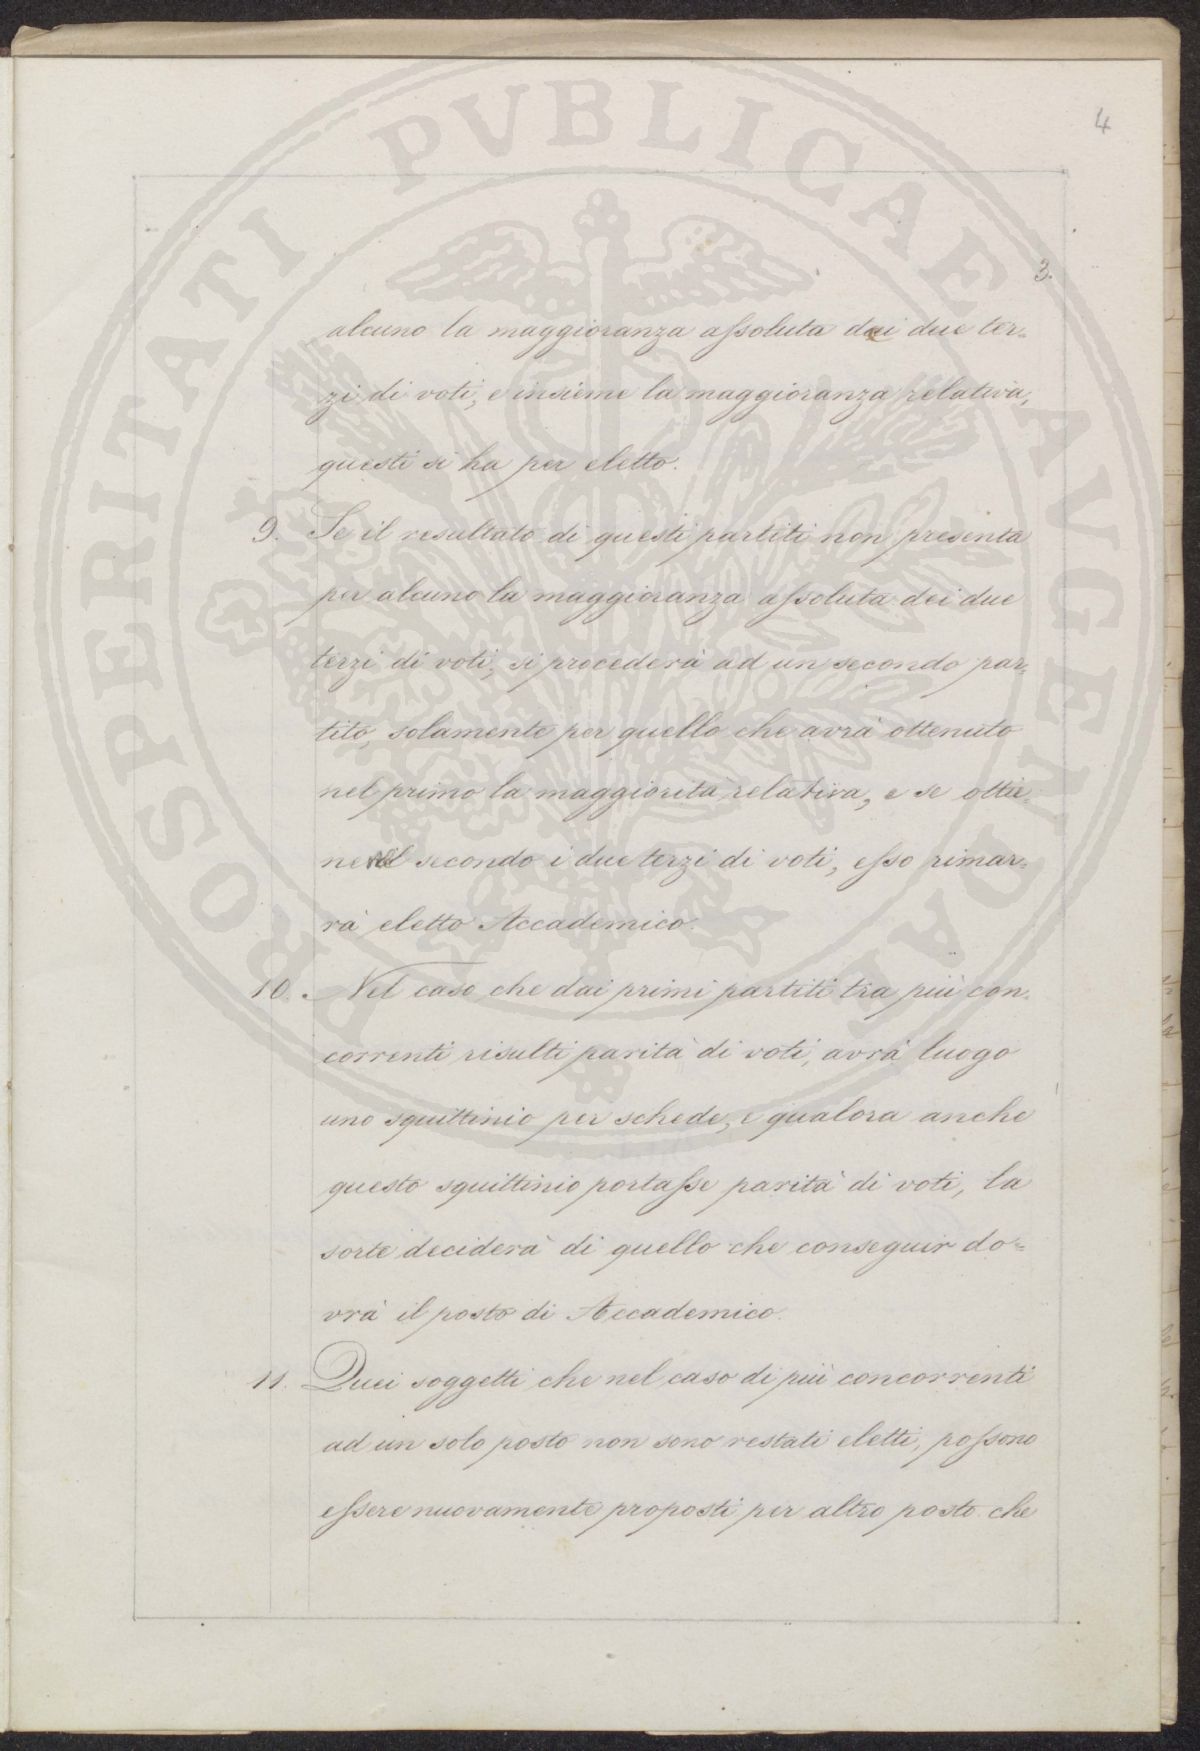 4
3.
alcuno la maggioranza assoluta dei due ter=
zi di voti, e insieme la maggioranza relativa,
questi si ha per eletto.
9. Se il resultato di questi partiti non presenta
per alcuno la maggioranza assoluta dei due
terzi di voti, si procederà ad un secondo par=
tito, solamente per quello che avrà ottenuto
nel primo la maggiorità relativa, e se ottie=
ne nel secondo i due terzi di voti, esso rimar=
rà eletto Accademico.
10. Nel caso che dai primi partiti tra più con=
correnti risulti parità di voti, avrà luogo
uno squittinio per schede, e qualora anche
questo squittinio portasse parità di voti, la
sorte deciderà di quello che conseguir do=
vrà il posto di Accademico.
11. Quei soggetti che nel caso di più concorrenti
ad un solo posto non sono restati eletti, possono
essere nuovamente proposti per altro posto che
PROSPERITATI PVBLICAE AVGENDAE